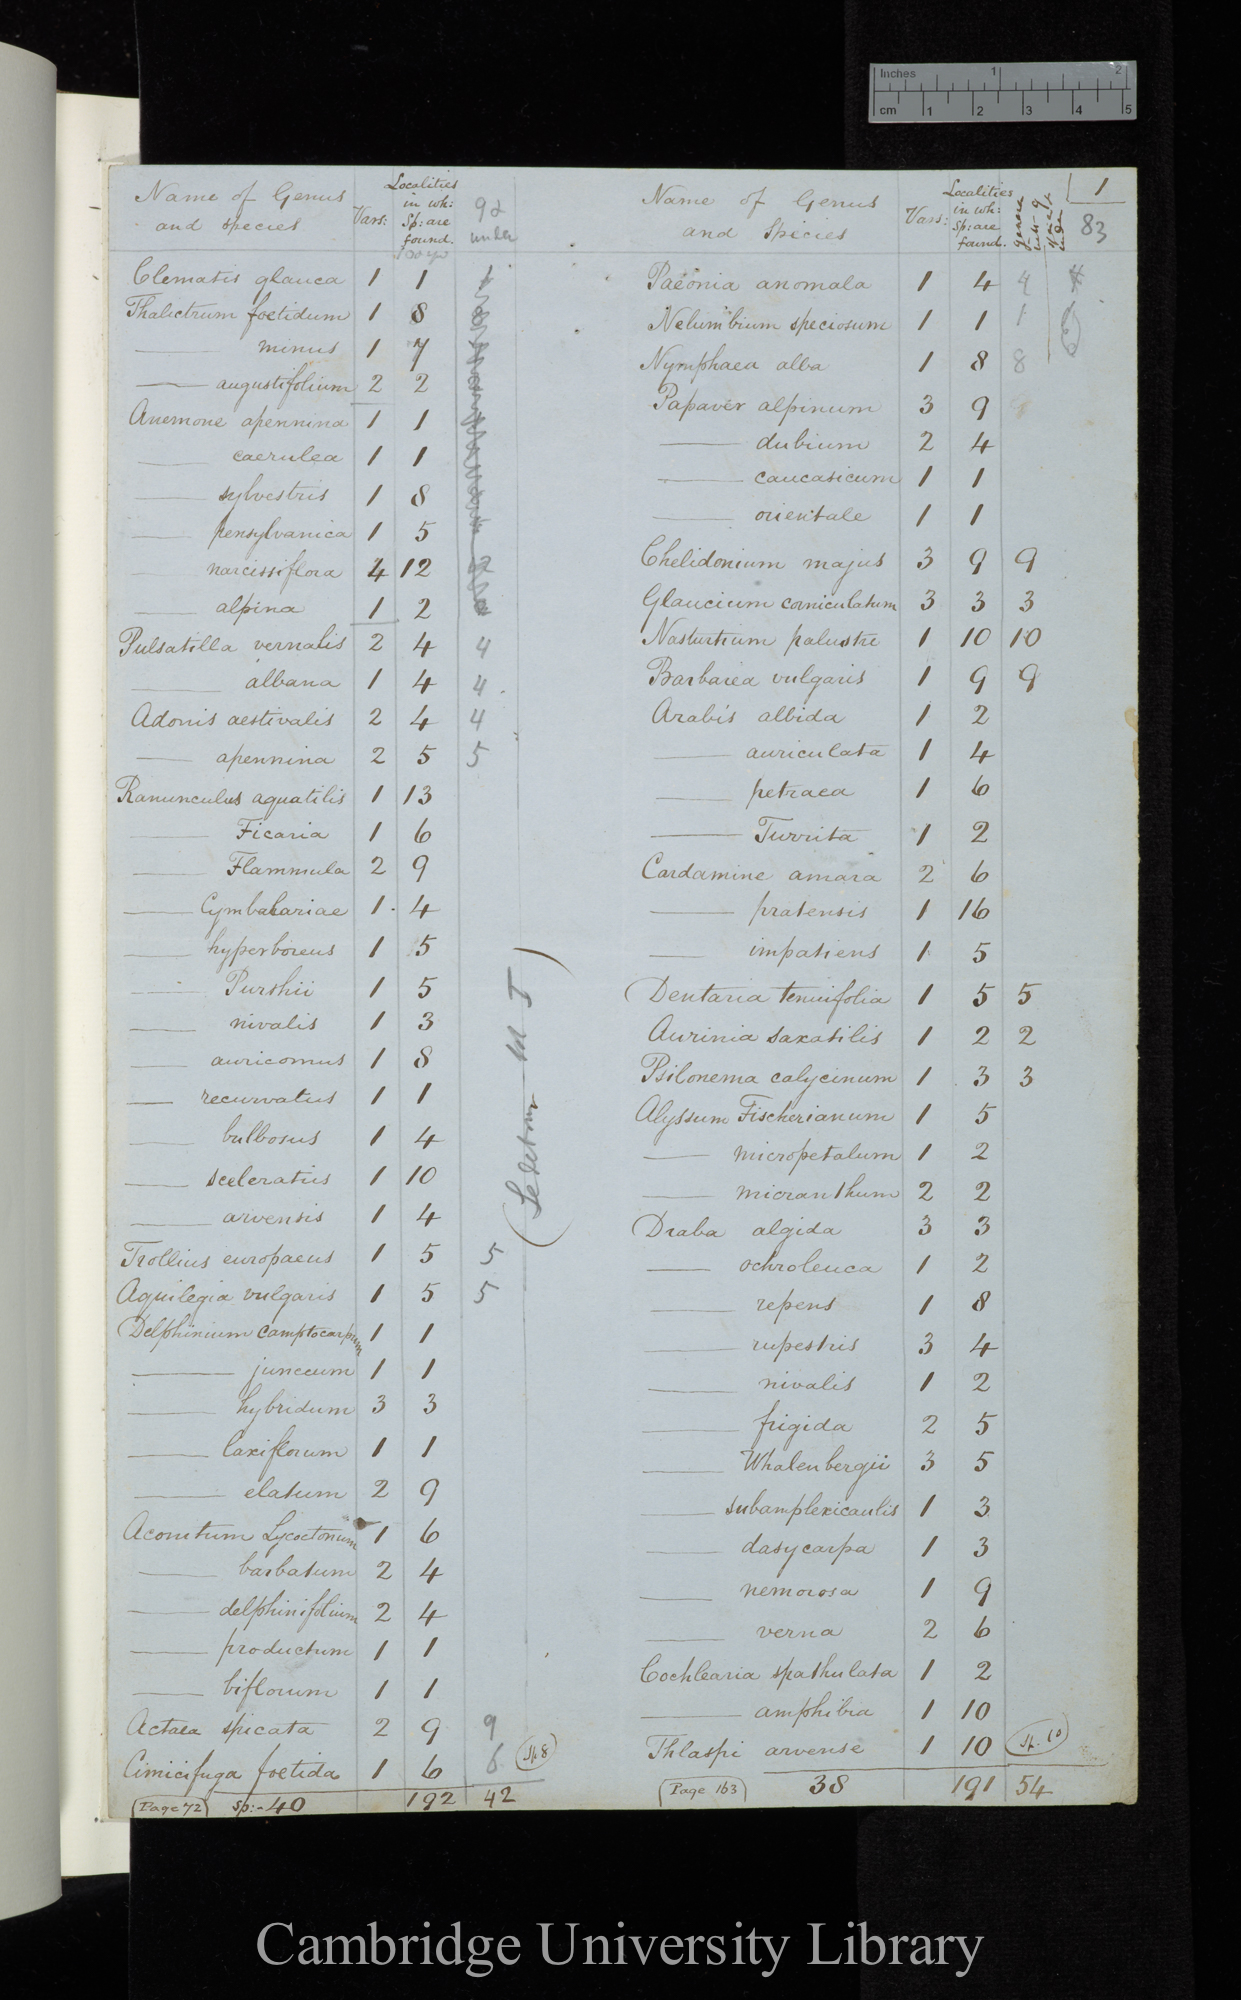 Inches 1 2
cm 1 2 3 4 5
1
83
Name of Genus and species Vars: Localities in wh: Sp: are found.
Clematis glauca 1 1
Thalictrum foetidum 1 8
—— minus 1 7
—— augustifolium 2 2
Anemone apennina 1 1
—— caerulea 1 1
—— sylvestris 1 8
—— pensylvanica 1 5
—— narcissiflora 4 12
—— alpina 1 2
Pulsatilla vernalis 2 4 4
—— albana 1 4 4
Adonis aestivalis 2 4 4
—— apennina 2 5 5
Ranunculus aquatilis 1 13
—— Ficaria 1 6
—— Flammula 2 9
—— Cymbalariae 1 4
—— hyperboreus 1 5
—— Purshii 1 5
—— nivalis 1 3
—— auricomus 1 8
—— recurvatus 1 1
—— bulbosus 1 4
—— sceleratus 1 10
—— arvensis 1 4
Trollius europaeus 1 5 5
Aquilegia vulgaris 1 5 5
Delphinium camptocarpum 1 1
—— junceum 1 1
—— hybridum 3 3
—— laxiflorum 1 1
—— elatum 2 9
Aconitum Lycoctonum 1 6
—— barbatum 2 4
—— delphinifolium 2 4
—— productum 1 1
—— biflorum 1 1
Actaea spicata 2 9 9
Cimicifuga foetida 1 6 6 Sp. 8
Page 72 Sp:- 40 192 42
Name of Genus and Species Vars: Localities in wh: Sp: are found.
Paeonia anomala 1 4 4
Nelumbium speciosum 1 1 1
Nymphaea alba 1 8 8
Papaver alpinum 3 9
—— dubium 2 4
—— caucasicum 1 1
—— orientale 1 1
Chelidonium majus 3 9 9
Glaucium corniculatum 3 3 3
Nasturtium palustre 1 10 10
Barbarea vulgaris 1 9 9
Arabis albida 1 2
—— auriculata 1 4
—— petraea 1 6
—— Turrita 1 2
Cardamine amara 2 6
—— pratensis 1 16
—— impatiens 1 5
Dentaria tenuifolia 1 5 5
Aurinia saxatilis 1 2 2
Psilonema calycinum 1 3 3
Alyssum Fischerianum 1 5
—— micropetalum 1 2
—— micranthum 2 2
Draba algida 3 3
—— ochroleuca 1 2
—— repens 1 8
—— rupestris 3 4
—— nivalis 1 2
—— frigida 2 5
—— Whalenbergii 3 5
—— subamplexicaulis 1 3
—— dasycarpa 1 3
—— nemorosa 1 9
—— verna 2 6
Cochlearia spathulata 1 2
—— amphibia 1 10
Thlaspi arvense 1 10 Sp. 10
Page 163 38 191 54
Cambridge University Library